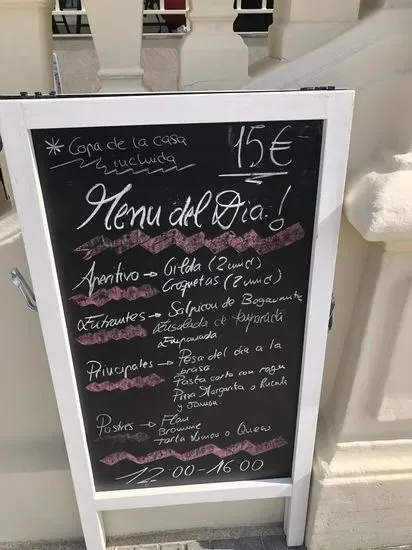 * Copa de la casa
incluida
15€
Menu del Dia!
Aperitivo → Gilda (2 unid)
Croquetas (2 unid)
Entrantes → Salpicon de Bogavante
Ensalada de temporada
Empanada
Principales → Pesca del dia a la
brasa
Pasta corta con ragu
Pizza Margarita o Rucula
y Jamon
Postres → Flan
Brownie
Tarta Limon o Queso
12:00-16:00